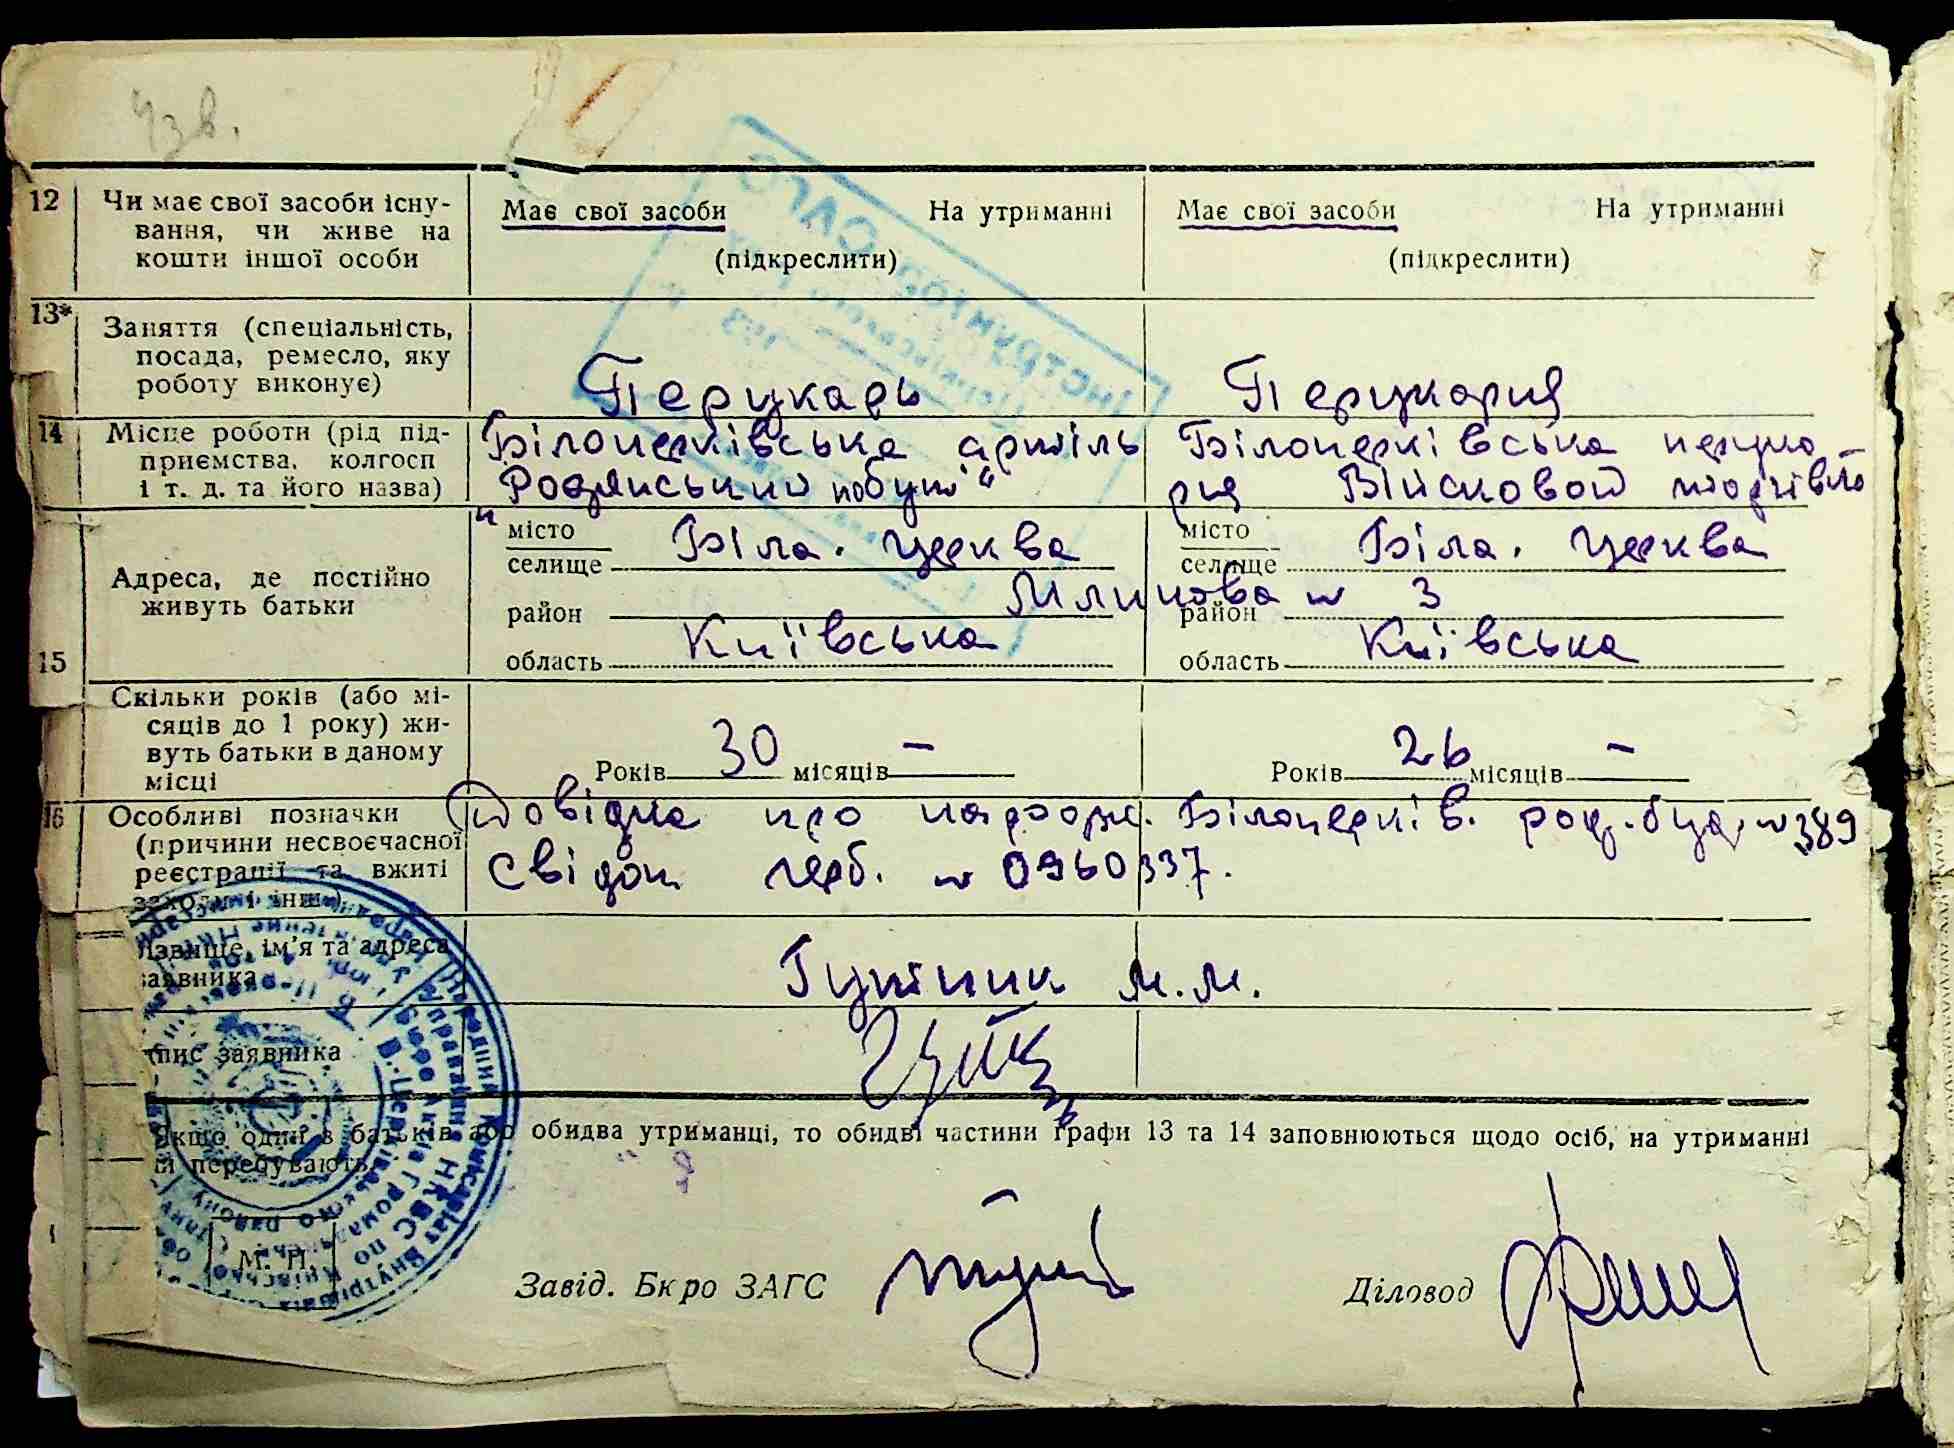 12 Чи має свої засоби існу-
вання, чи живе на
кошти іншої особи
Має свої засоби На утриманні
(підкреслити)
Має свої засоби На утриманні
(підкреслити)
13* Заняття (спеціальність,
посада, ремесло, яку
роботу виконує)
Перукарь
Перукарня
14 Місце роботи (рід під-
приємства, колгосп
і т. д. та його назва)
Білоцерківська артіль
"Родянський побут"
Білоцерківська перука-
рня Військовой торгівлі
15 Адреса, де постійно
живуть батьки
місто
селище Біла. Церква
район
область Київська
місто
селище Біла. Церква
район
область Київська
№ 3
Скільки років (або мі-
сяців до 1 року) жи-
вуть батьки в даному
місці
Років 30 місяців —
Років 26 місяців —
16 Особливі позначки
(причини несвоєчасної
реєстрації та вжиті
заходи і інш.)
Довідка про народж. Білоцерків. род. буд. №389
Свідоц. герб. № 0960337.
Прізвище, ім'я та адреса
заявника
М.М.
Підпис заявника
Якщо один з батьків або обидва утриманці, то обидві частини графи 13 та 14 заповнюються щодо осіб, на утриманні
перебувають
М. П.
Завід. Бюро ЗАГС
Діловод